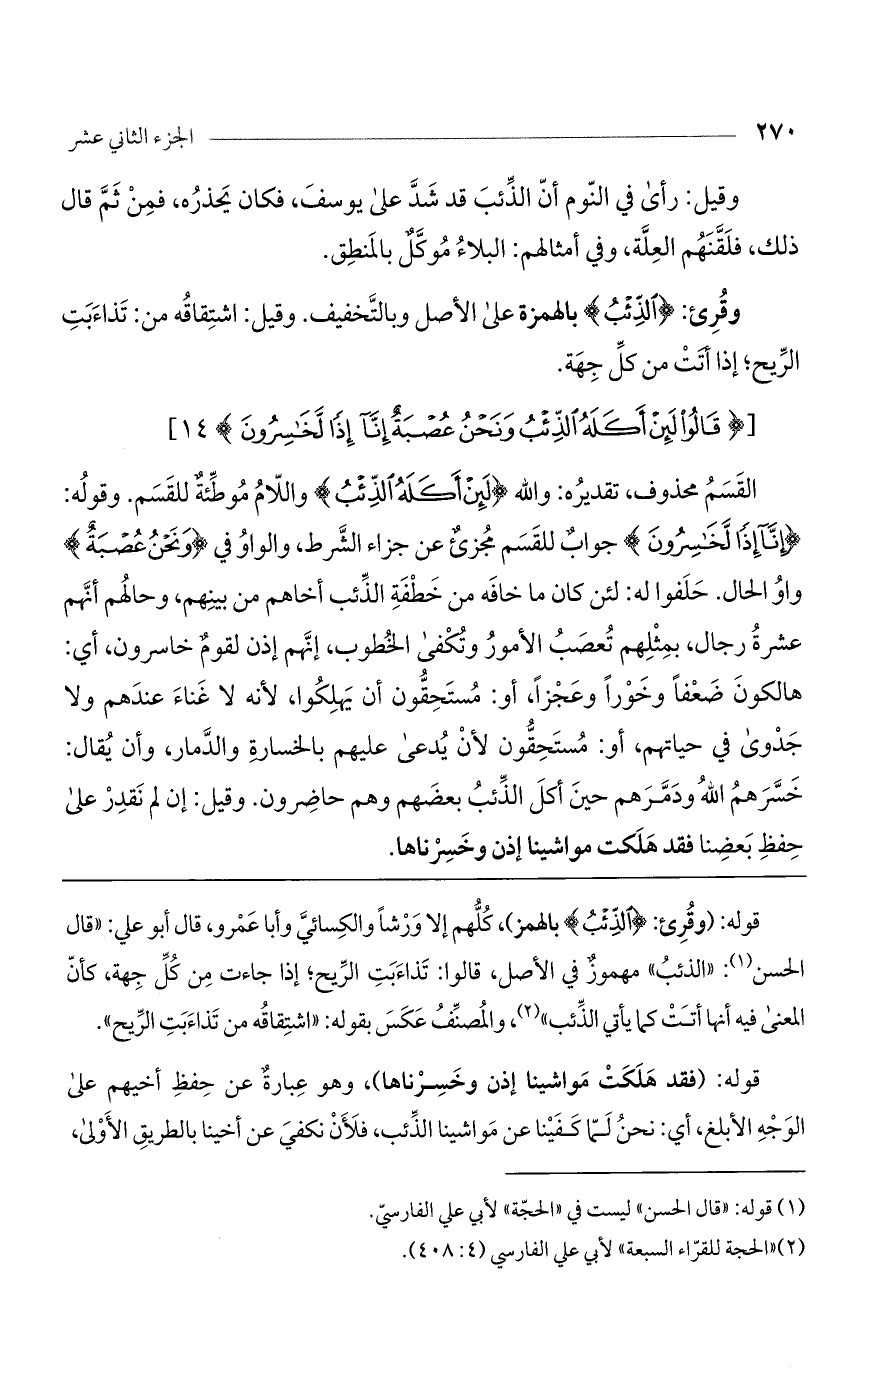 ٢٧٠ الجزء الثاني عشر
وقيل: رأىٰ في النّوم أنّ الذِّئبَ قد شَدَّ علىٰ يوسفَ، فكان يَحذرُه، فمِنْ ثَمَّ قال
ذلك، فلَقَّنَهُم العِلَّة، وفي أمثالهم: البلاءُ مُوكَّلٌ بالمَنطِق.
وقُرِئ: ﴿ٱلذِّئۡبُ﴾ بالهمزة علىٰ الأصل وبالتَّخفيف. وقيل: اشتِقاقُه من: تَذاءَبَتِ
الرِّيح؛ إذا أتَتْ من كلِّ جِهَة.
[﴿ قَالُوا۟ لَئِنۡ أَكَلَهُ ٱلذِّئۡبُ وَنَحۡنُ عُصۡبَةٌ إِنَّآ إِذًا لَّخَـٰسِرُونَ ﴾ ١٤]
القَسَمُ محذوف، تقديرُه: والله ﴿لَئِنۡ أَكَلَهُ ٱلذِّئۡبُ﴾ واللّامُ مُوطِّئةٌ للقَسَم. وقولُه:
﴿إِنَّآ إِذًا لَّخَـٰسِرُونَ ﴾ جوابٌ للقَسَم مُجزِئٌ عن جزاء الشَّرط، والواوُ في ﴿وَنَحۡنُ عُصۡبَةٌ ﴾
واوُ الحال. حَلَفوا له: لئن كان ما خافَه من خَطْفَةِ الذِّئب أخاهم من بينِهم، وحالُهم أنَّهم
عشرةُ رجال، بمِثْلِهم تُعصَبُ الأمورُ وتُكْفىٰ الخُطوب، إنَّهم إذن لقومٌ خاسرون، أي:
هالكونَ ضَعْفاً وخَوْراً وعَجْزاً، أو: مُستَحِقُّون أن يَهلِكُوا، لأنه لا غَناءَ عندَهم ولا
جَدْوىٰ في حياتهم، أو: مُستَحِقُّون لأنْ يُدعىٰ عليهم بالخسارةِ والدَّمار، وأن يُقال:
خَسَّرَهمُ اللهُ ودَمَّرَهم حينَ أكلَ الذِّئبُ بعضَهم وهم حاضِرون. وقيل: إن لم نَقدِرْ علىٰ
حِفظِ بَعضِنا فقد هَلَكت مواشينا إذن وخَسِرْناها.
قوله: (وقُرِئ: ﴿ٱلذِّئۡبُ﴾ بالهمز)، كُلُّهم إلا وَرْشاً والكِسائيَّ وأبا عَمْرو، قال أبو علي: «قال
الحسن(١): «الذئبُ» مهموزٌ في الأصل، قالوا: تَذاءَبَتِ الرِّيح؛ إذا جاءت مِن كُلِّ جِهة، كأنّ
المعنىٰ فيه أنها أتَتْ كما يأتي الذِّئب»(٢)، والمُصنِّفُ عَكَسَ بقوله: «اشتِقاقُه من تَذاءَبَتِ الرِّيح».
قوله: (فقد هَلَكَتْ مَواشينا إذن وخَسِرْناها)، وهو عِبارةٌ عن حِفظِ أخيهم علىٰ
الوَجْهِ الأبلغ، أي: نحنُ لَـمّا كَفَيْنا عن مَواشينا الذِّئب، فلَأَنْ نكفيَ عن أخينا بالطريقِ الأَوْلىٰ،
(١) قوله: «قال الحسن» ليست في «الحجّة» لأبي علي الفارسيّ.
(٢) «الحجة للقرّاء السبعة» لأبي علي الفارسي (٤: ٤٠٨).